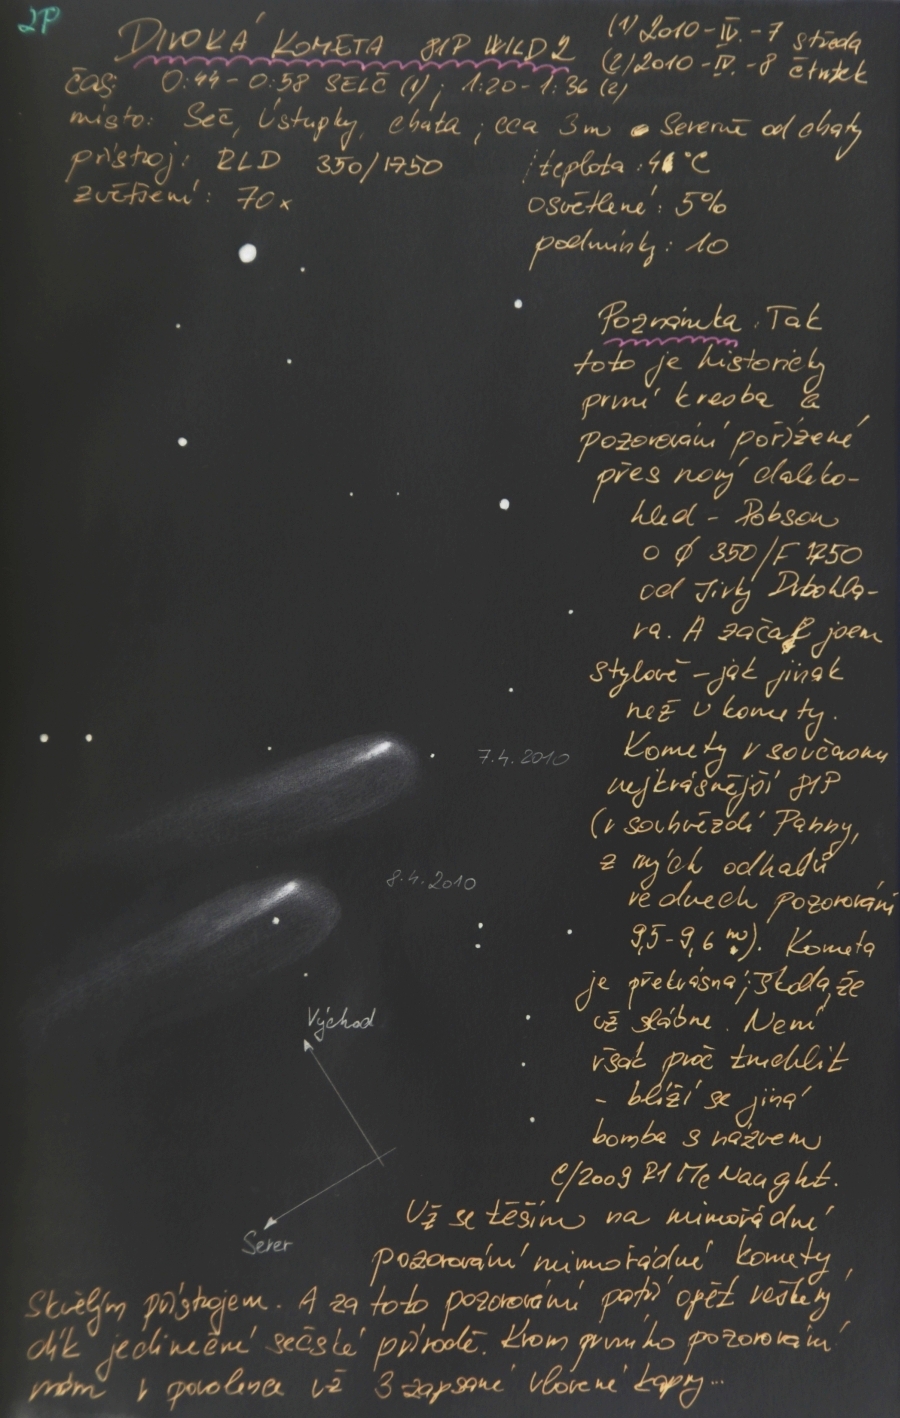 2P
DIVOKÁ KOMETA 81P WILD 2
(1) 2010-IV.-7 středa
(2) 2010-IV.-8 čtvrtek
čas: 0:44-0:58 SELČ (1); 1:20-1:36 (2)
místo: Seč, Ústupky, chata; cca 3m severně od chaty
přístroj: RLD 350/1750
teplota: 4 °C
zvětšení: 70x
osvětlené: 5%
podmínky: 10
Poznámka: Tak
toto je historicky
první kresba a
pozorování pořízené
přes nový daleko-
hled - Dobson
o ϕ 350/F 1750
od Jirky Drbohla-
va. A začal jsem
stylově - jak jinak
než u komety.
Komety v současnu
nejkrásnější 81P
(v souhvězdí Panny,
z mých odhadů
ve dnech pozorování
9,5-9,6 m). Kometa
je překrásná; škoda, že
už slábne. Není
však proč truchlit
- blíží se jiná
bomba s názvem
C/2009 R1 McNaught.
Už se těším na mimořádné
pozorování mimořádné komety
skvělým přístrojem. A za toto pozorování patří opět veškerý
dík jedinečné sečské přírodě. Krom prvního pozorování
mám v povolence už 3 zapsané ulovené kapry...
7.4.2010
8.4.2010
Východ
Sever